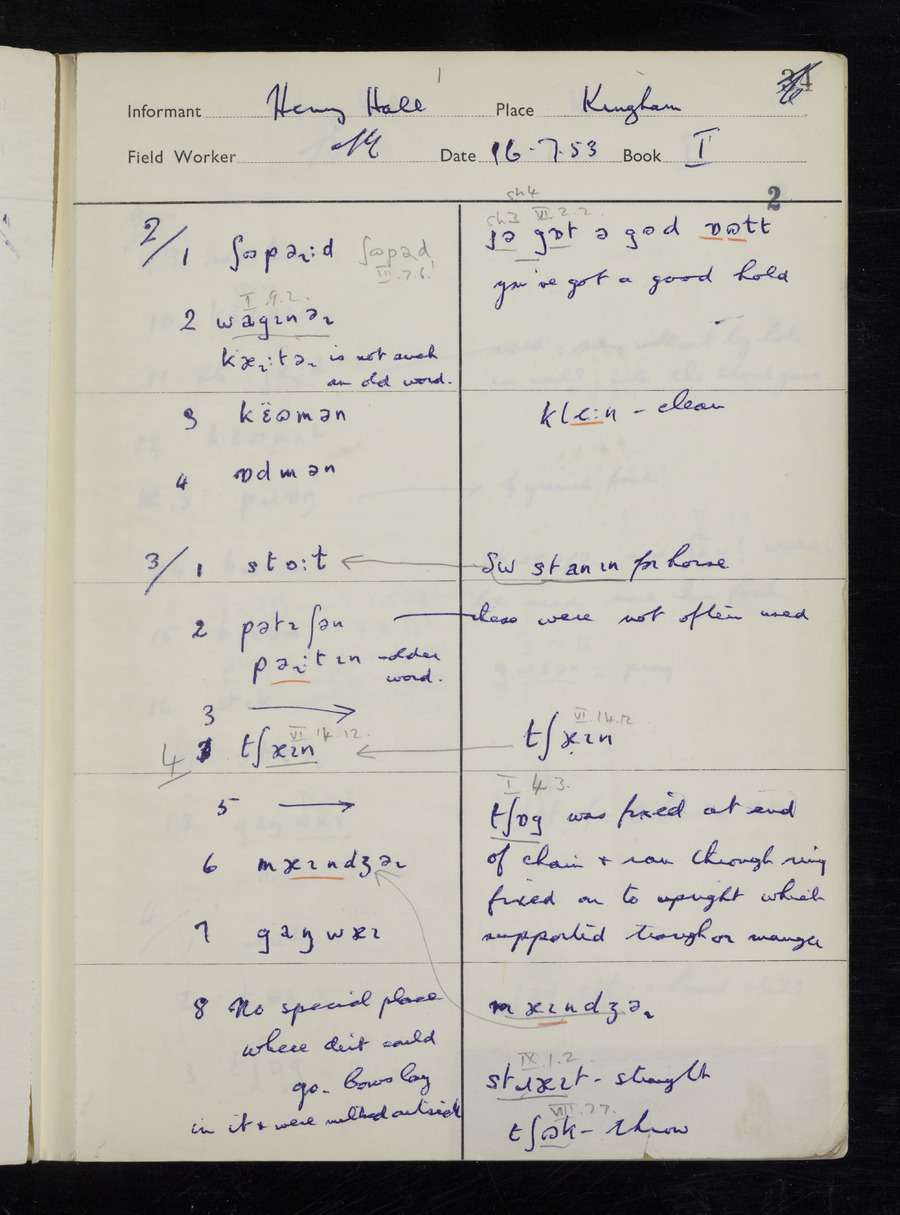 1
34
Informant Henry Hall Place Kingham
Field Worker Date 16-7-53 Book I
2
2/1 ʃɷpəɹ:d ʃɷpəd
III.7.6!
I.9.2.
2 wagɪnəɹ
kæɹ:təɹ is not such
an old word.
3 këɷmən
4 ɒdmən
3/1 stɔ:t
2 pətɪʃən
pəɹ:tɪn older
word.
3 →
VI.14.12.
4 tʃæɪn
5 →
6 mæɪndʒəɹ
7 gaŋwæɪ
8 No special place
where dirt could
go. Cows lay
in it & were milked outside
sh4
sh3 VI.2.2.
jə gɒt ə gɷd ɒɷtt
you've got a good hold
kle:n - clean
SW stanɪn for horse
these were not often used
VI.14.12.
tʃæɪn
I 4 3.
tʃɒg was fixed at end
of chain & ran through ring
fixed on to upright which
supported trough or manger
mæɪndʒəɹ
IX.1.2.
stɹæɪt - straight
VIII.7.7.
tʃɷk - throw